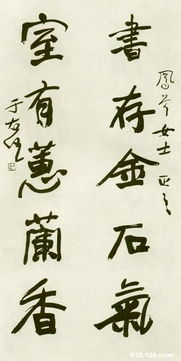 鳳芩女士 正之
書存金石氣
室有蕙蘭香
于右任
610.126.com